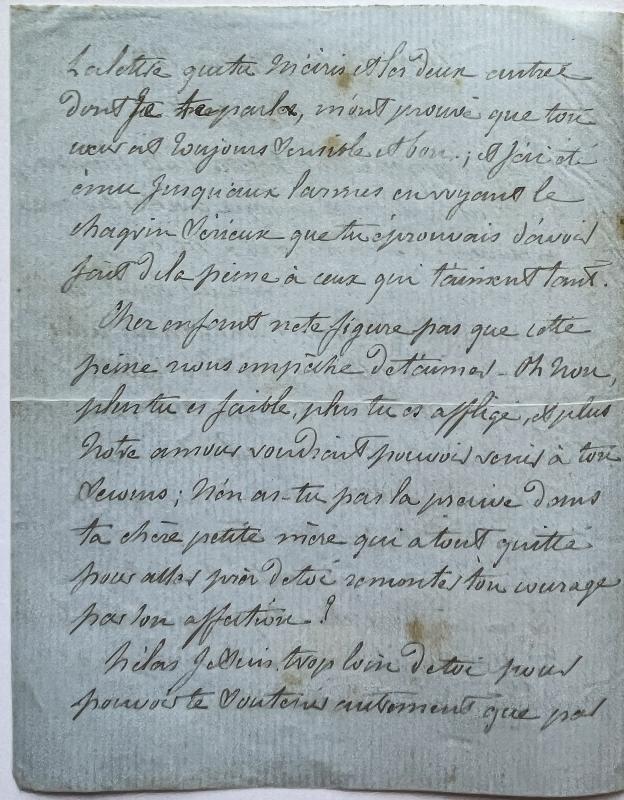 La lettre que tu m'écris et les deux autres
dont je te parle, m'ont prouvé que ton
cœur est toujours sensible et bon ; et j'ai été
ému jusqu'aux larmes en voyant le
chagrin sérieux que tu éprouvais d'avoir
fait de la peine à ceux qui t'aiment tant.
Cher enfant ne te figure pas que cette
peine nous empêche de t'aimer - Oh non,
plus tu es faible, plus tu es affligé, et plus
Notre amour voudrait pouvoir venir à ton
secours ; N'en as-tu pas la preuve dans
ta chère petite mère qui a tout quitté
pour aller près de toi remonter ton courage
par son affection ?
Hélas Je suis trop loin de toi pour
pouvoir te soutenir autrement que par